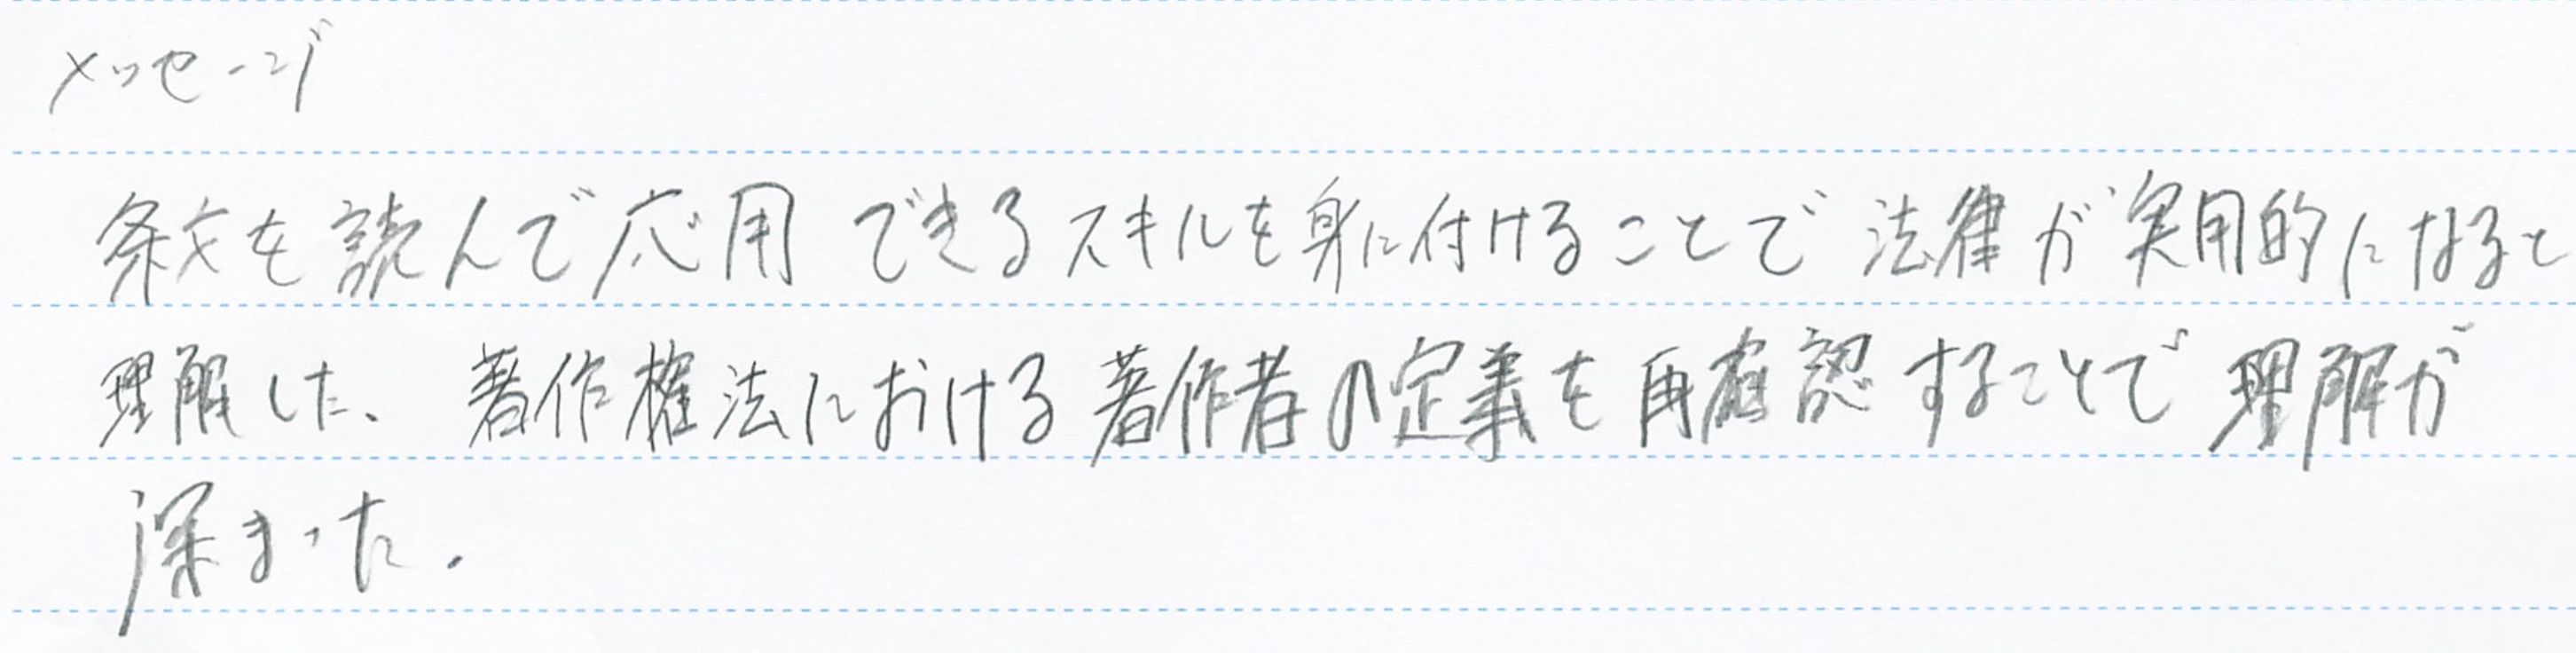 メッセージ
条文を読んで応用できるスキルを身に付けることで法律が実用的になると
理解した、著作権法における著作者の定義を再確認することで理解が
深まった.